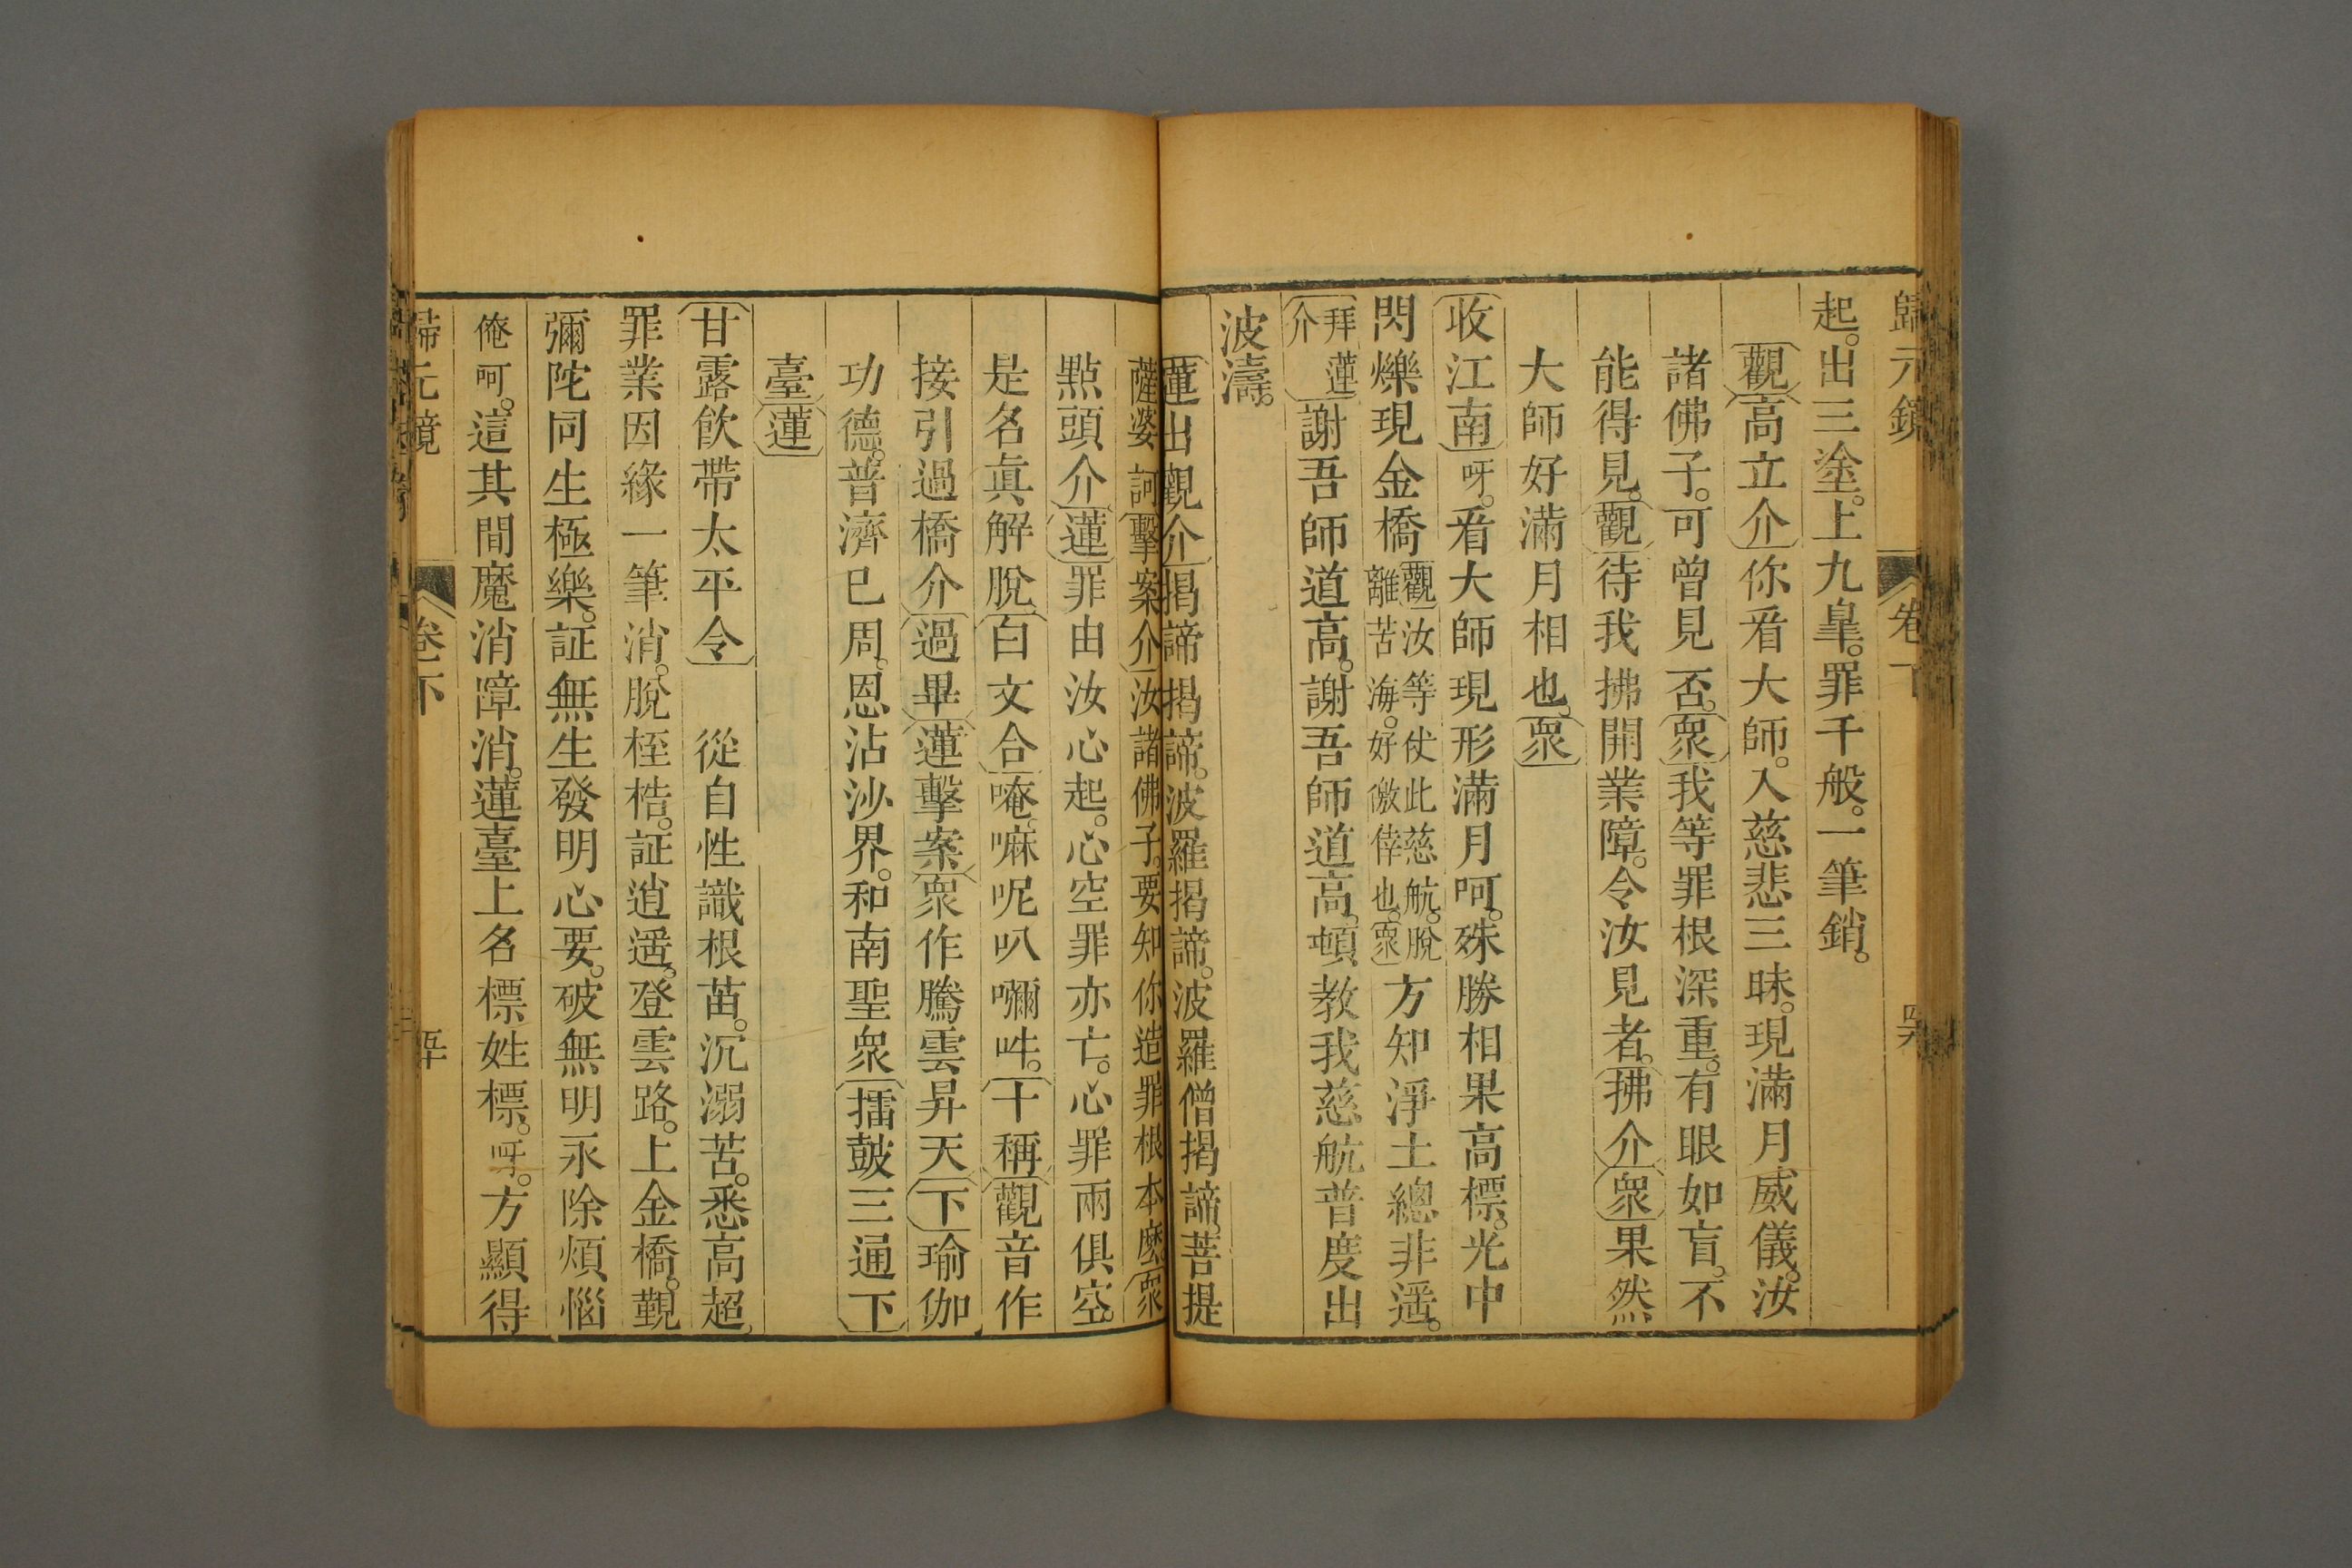 歸元鏡 卷下
起。出三塗。上九皇。罪千般。一筆銷。
觀高立介你看大師。入慈悲三昧。現滿月威儀。汝
諸佛子。可曾見否。眾我等罪根深重。有眼如盲。不
能得見。觀待我拂開業障。令汝見者。拂介眾果然
大師好滿月相也。眾
收江南呀。看大師現形滿月呵。殊勝相果高標。光中
閃爍現金橋觀汝等仗此慈航。脫離苦海。好僥倖也。眾方知淨土總非遥。
拜蓮介謝吾師道高。謝吾師道高。頓教我慈航普度出
波濤。
蓮出觀介揭諦揭諦。波羅揭諦。波羅僧揭諦。菩提
薩婆訶擊案介汝諸佛子。要知你造罪根本麽。眾
點頭介蓮罪由汝心起。心空罪亦亡。心罪兩俱空。
是名眞解脫白文合唵。嘛呢叭嚩吽。十稱觀音作
接引過橋介過畢蓮擊案眾作騰雲昇天下瑜伽
功德。普濟已周。恩沾沙界。和南聖眾擂鼓三通下
臺蓮
甘露飲帶太平令 從自性識根苗。沉溺苦。悉高超。
罪業因緣一筆消。脫桎梏。証逍遥。登雲路。上金橋。覲
彌陀同生極樂。証無生發明心要。破無明永除煩惱
俺呵。這其間魔消障消。蓮臺上名標姓標。呀。方顯得
歸元鏡 卷下